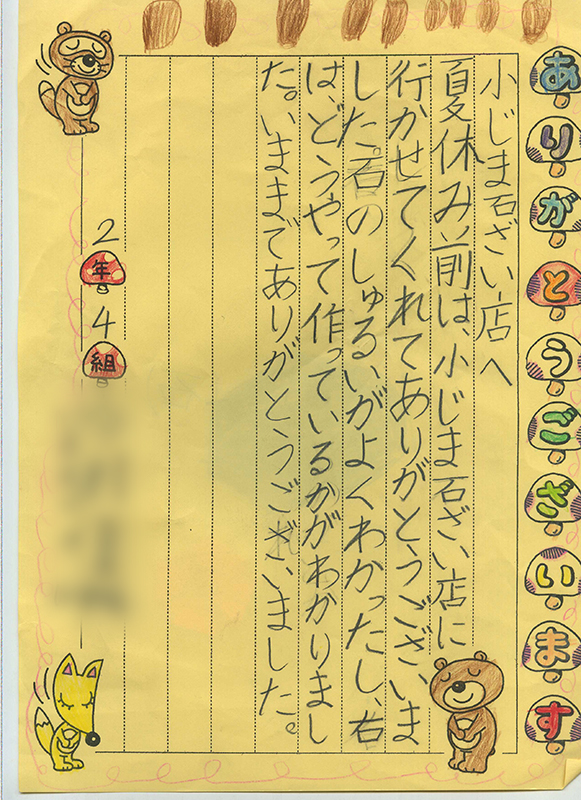 ありがとうございます
小じま石ざい店へ
夏休み前は、小じま石ざい店に
行かせてくれてありがとうございま
した。石のしゅるいがよくわかったし、石
は、どうやって作っているかがわかりまし
た。いままでありがとうございました。
2年4組